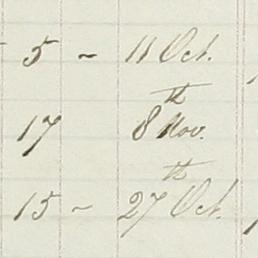 5 ~ 11 Oct.
17 8th Nov.
15 ~ 27th Oct.